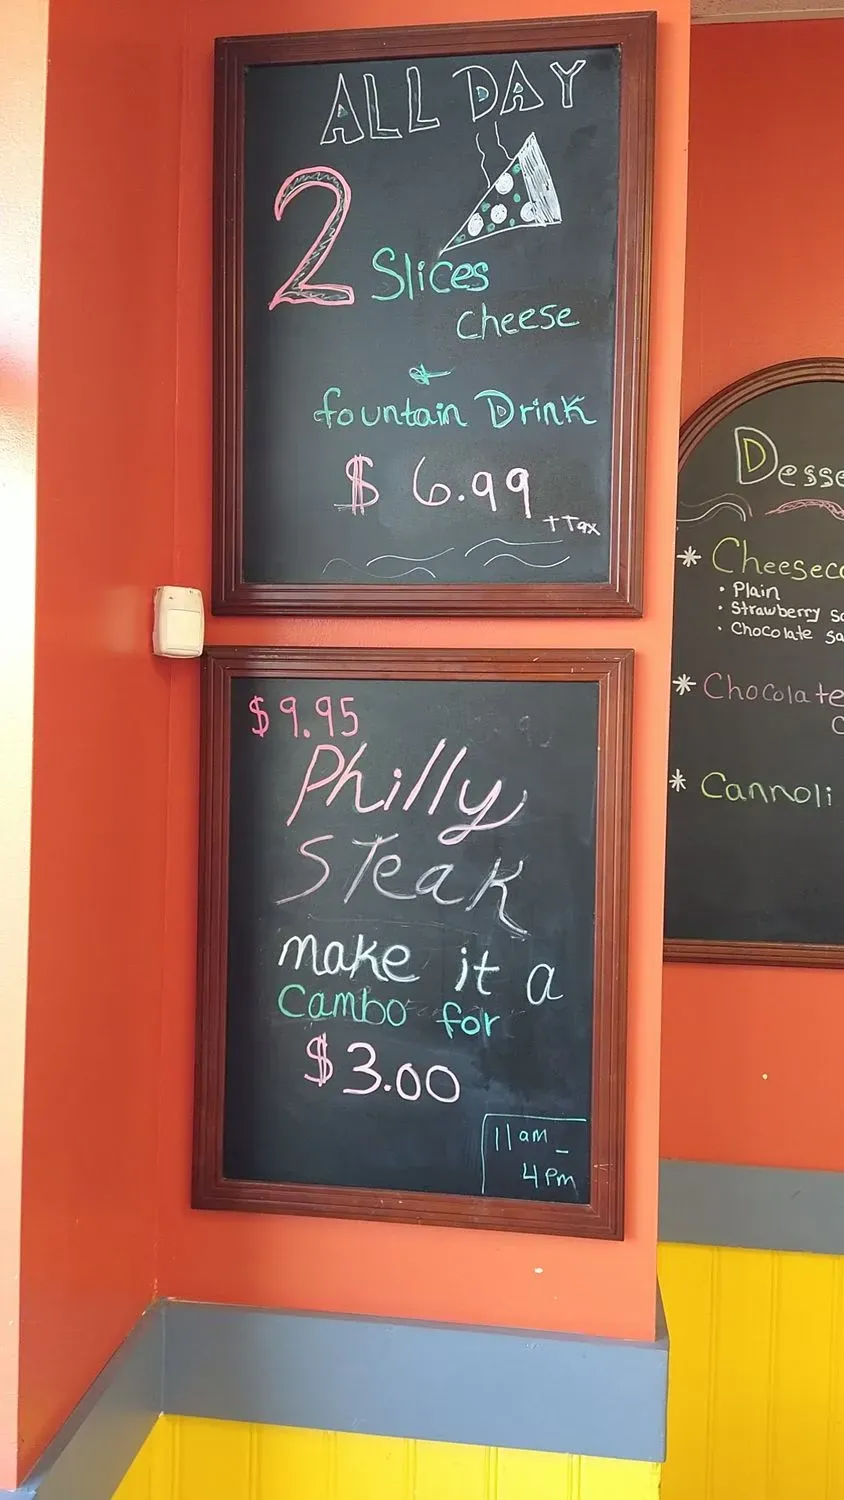 ALL DAY
2 Slices
cheese
&
fountain Drink
$ 6.99
+Tax
$9.95
Philly
STeak
make it a
Cambo for
$3.00
11am -
4pm
Desse
* Cheeseca
• Plain
• Strawberry sa
• Chocolate sa
* Chocolate
C
* Cannoli